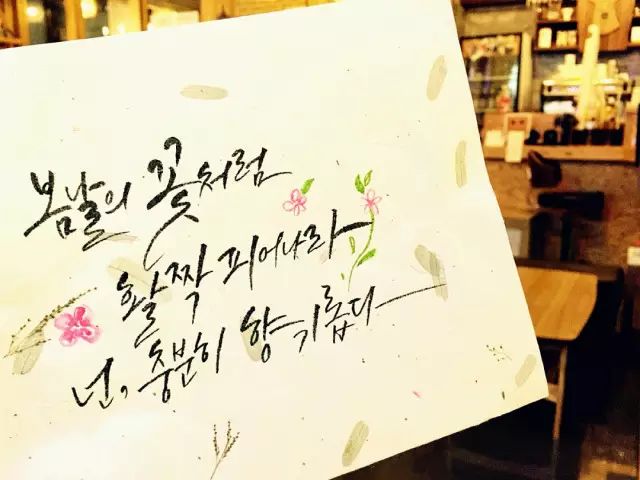 봄날의 꽃처럼
활짝 피어나라
넌, 충분히 향기롭다